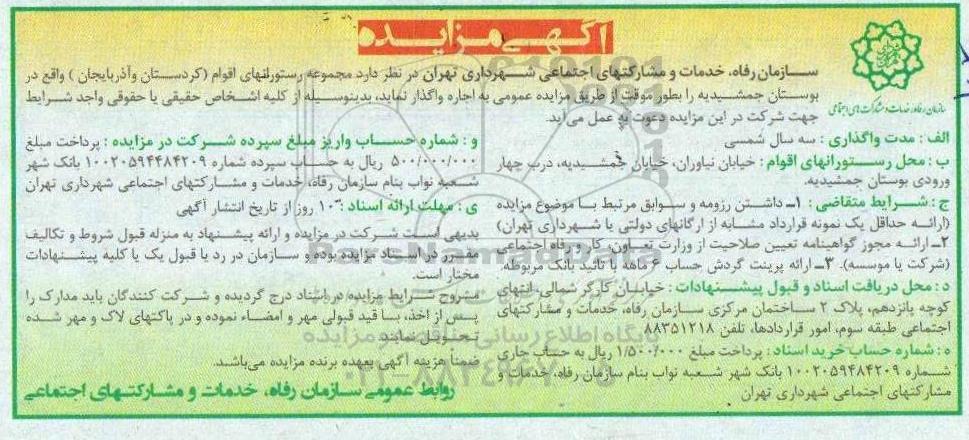 آگهی مزایده
سازمان رفاه، خدمات و مشارکتهای اجتماعی
سازمان رفاه، خدمات و مشارکتهای اجتماعی شهرداری تهران در نظر دارد مجموعه رستورانهای اقوام (کردستان وآذربایجان ) واقع در
بوستان جمشیدیه را بطور موقت از طریق مزایده عمومی به اجاره واگذار نماید، بدینوسیله از کلیه اشخاص حقیقی یا حقوقی واجد شرایط
جهت شرکت در این مزایده دعوت به عمل می‌آید.
الف : مدت واگذاری : سه سال شمسی
ب : محل رستورانهای اقوام : خیابان نیاوران، خیابان جمشیدیه، درب چهار
ورودی بوستان جمشیدیه.
ج : شرایط متقاضی : ۱ـ داشتن رزومه و سوابق مرتبط با موضوع مزایده
(ارائه حداقل یک نمونه قرارداد مشابه از ارگانهای دولتی یا شهرداری تهران)
۲ـ ارائه مجوز گواهینامه تعیین صلاحیت از وزارت تعاون، کار و رفاه اجتماعی
(شرکت یا موسسه). ۳ـ ارائه پرینت گردش حساب ۶ ماهه با تائید بانک مربوطه.
د : محل دریافت اسناد و قبول پیشنهادات : خیابان کارگر شمالی، انتهای
کوچه پانزدهم، پلاک ۲ ساختمان مرکزی سازمان رفاه، خدمات و مشارکتهای
اجتماعی طبقه سوم، امور قراردادها، تلفن ۸۸۳۵۱۲۱۸
ه : شماره حساب خرید اسناد : پرداخت مبلغ ۱/۵۰۰/۰۰۰ ریال به حساب جاری
شماره ۱۰۰۲۰۵۹۴۸۴۲۰۹ بانک شهر شعبه نواب بنام سازمان رفاه، خدمات و
مشارکتهای اجتماعی شهرداری تهران
و : شماره حساب واریز مبلغ سپرده شرکت در مزایده : پرداخت مبلغ
۵۰۰/۰۰۰/۰۰۰ ریال به حساب سپرده شماره ۱۰۰۲۰۵۹۴۴۸۴۲۰۹ بانک شهر
شعبه نواب بنام سازمان رفاه، خدمات و مشارکتهای اجتماعی شهرداری تهران
ی : مهلت ارائه اسناد : ۱۰ روز از تاریخ انتشار آگهی
بدیهی است شرکت در مزایده و ارائه پیشنهاد به منزله قبول شروط و تکالیف
مقرر در اسناد مزایده بوده و سازمان در رد یا قبول یک یا کلیه پیشنهادات
مختار است.
مشروح شرایط مزایده در اسناد درج گردیده و شرکت کنندگان باید مدارک را
پس از اخذ، با قید قبولی مهر و امضاء نموده و در پاکتهای لاک و مهر شده
تحویل نمایند
ضمناً هزینه آگهی بعهده برنده مزایده می‌باشد.
روابط عمومی سازمان رفاه، خدمات و مشارکتهای اجتماعی
ParsNamadData
پایگاه اطلاع رسانی مناقصه و مزایده